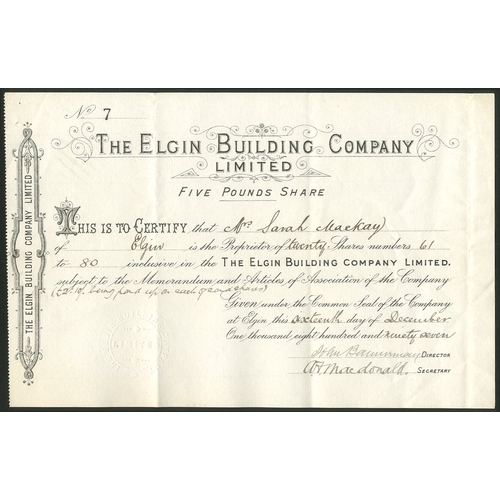 No 7
THE ELGIN BUILDING COMPANY
LIMITED
FIVE POUNDS SHARE
THIS IS TO CERTIFY that Mrs Sarah Mackay
of Elgin is the Proprietor of twenty Shares numbers 61
to 80 inclusive in the THE ELGIN BUILDING COMPANY LIMITED.
subject to the Memorandum and Articles of Association of the Company
being paid up on each of said shares
Given under the Common Seal of the Company
at Elgin this sixteenth day of December
One thousand eight hundred and ninety seven
John DIRECTOR
Macdonald. SECRETARY
THE ELGIN BUILDING COMPANY LIMITED.